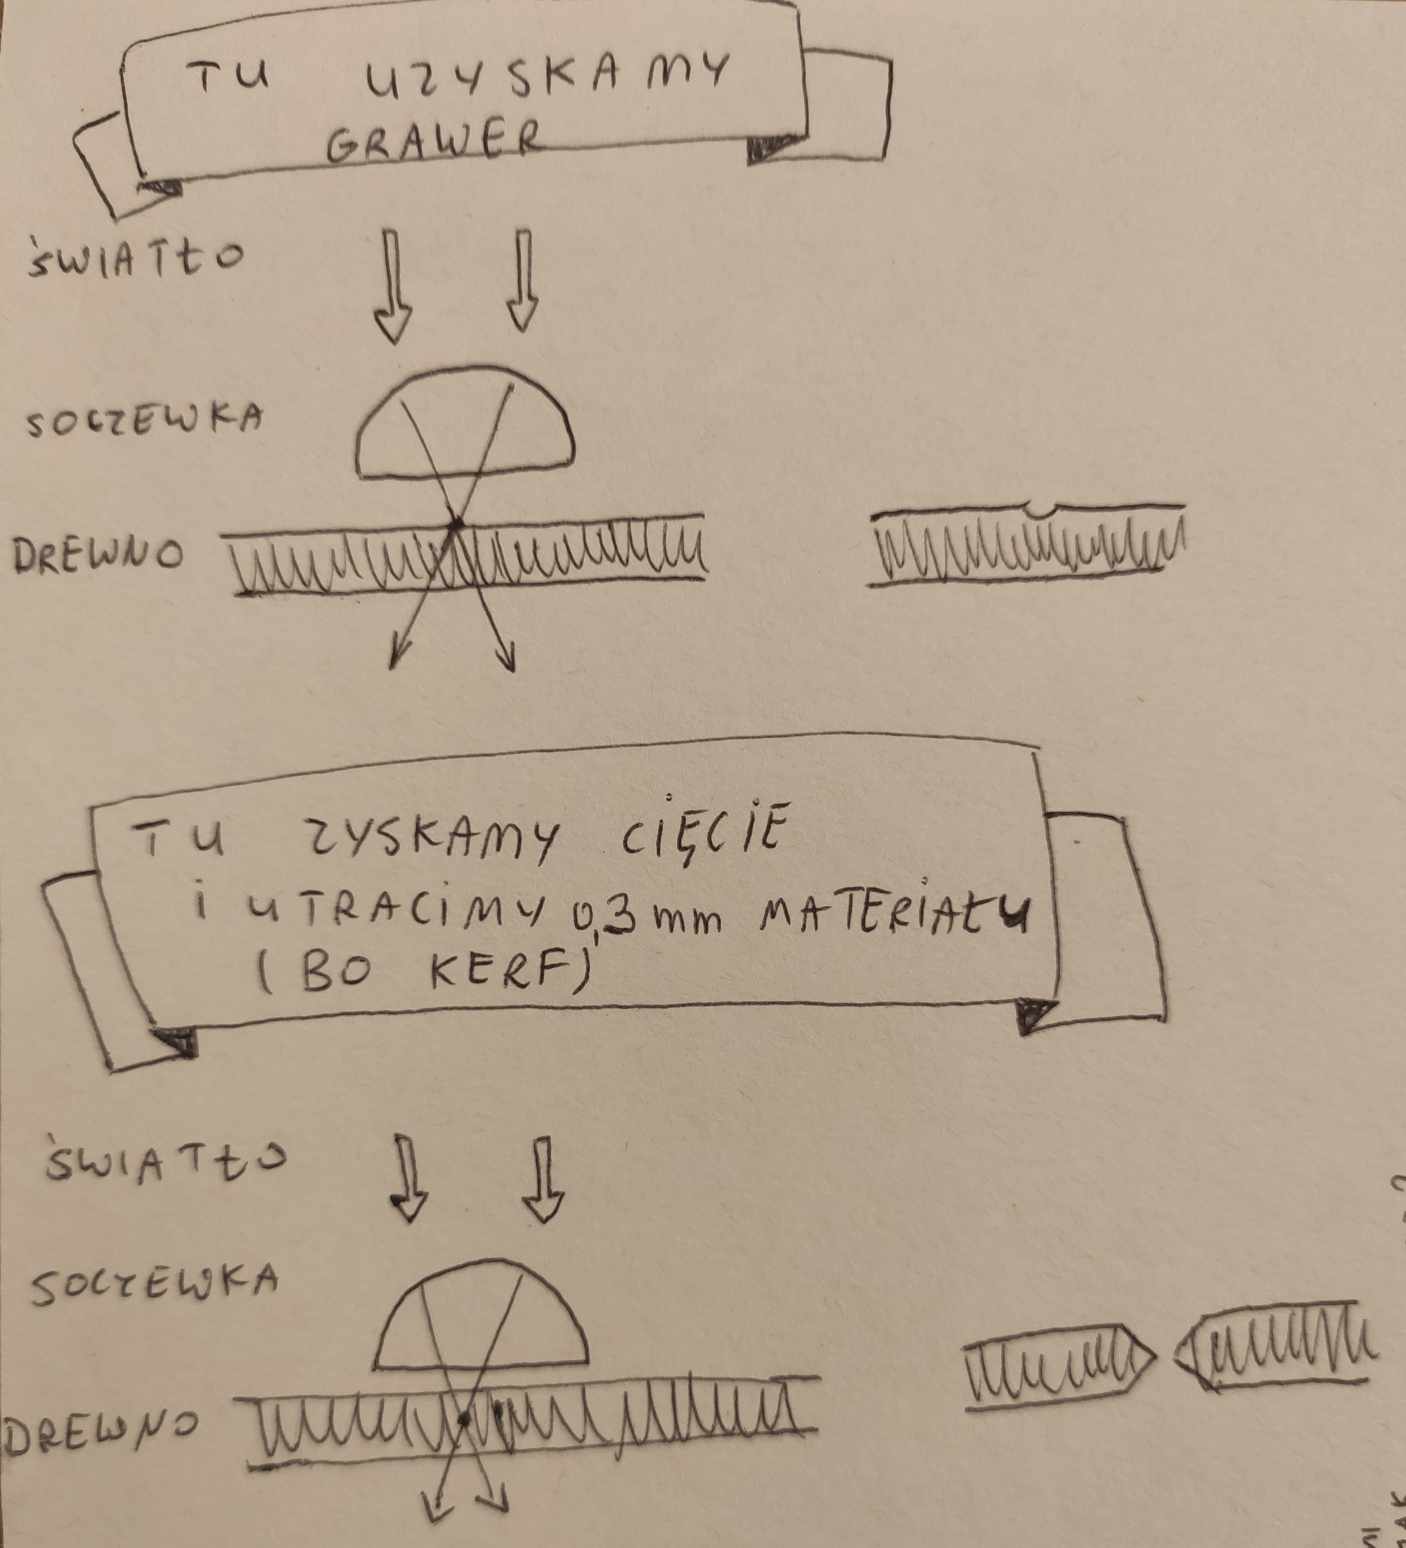 TU UZYSKAMY
GRAWER
ŚWIATŁO
SOCZEWKA
DREWNO
TU ZYSKAMY CIĘCIE
i UTRACIMY 0,3 mm MATERIAŁU
(BO KERF)
ŚWIATŁO
SOCZEWKA
DREWNO